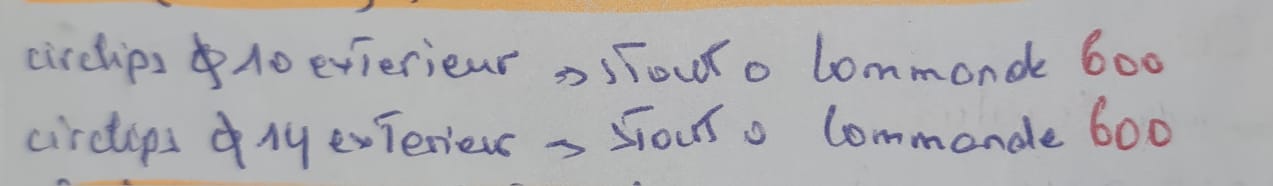 circlips ϕ 10 exterieur → stock 0 Commande 600
circlips ϕ 14 exterieur → stock 0 Commande 600